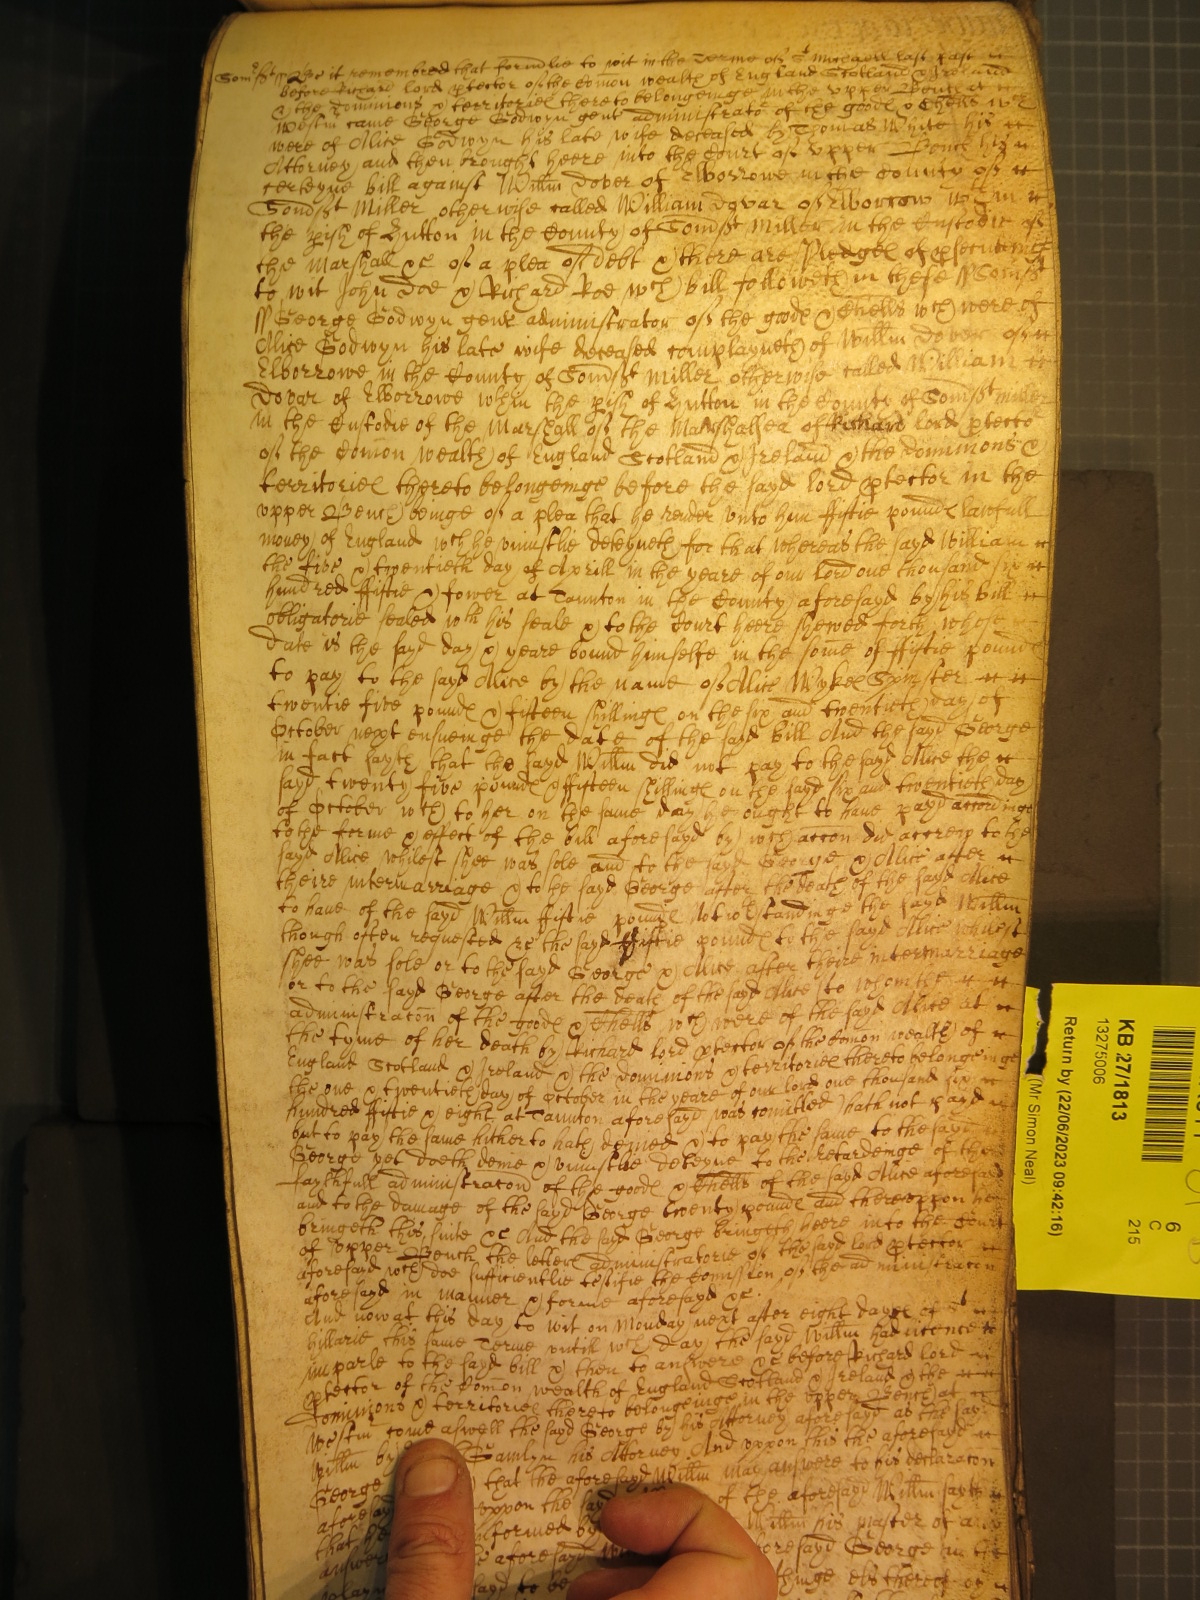 Somsst ss Be it remembred that hertofore to wit in the Terme of St Michaell last past
before Richard lord ptector of the Comon wealth of England Scotland & Ireland
& the Dominions & territories thereto belongeinge in the upper Bench at
Westm came George Godwyn gent administrator of the goods & Chells wch
were of Alice Godwyn his late wife deceased by Thomas White his
Attorney and then brought heere into the Court of upper Bench his
certeyne bill against Willm Dover of Elborrowe in the County of
Somsst Miller otherwise called William Dovar of Elborrow within
the pish of Hutton in the County of Somsst Miller in the Custodie of
the Marshall &c of a plea of debt & there are Pledges of psecuteinge
to wit John Doe & Richard Roe wch bill followeth in these ss Somsst
ss George Godwyn gent administrator of the goods & Chells wch were of
Alice Godwyn his late wife deceased complayneth of Willm Dover of
Elborrowe in the County of Somsst Miller otherwise called William
Dovar of Elborrowe wthin the pish of Hutton in the County of Somsst miller
in the Custodie of the Marshall of the Marshallsea of Richard lord ptector
of the Comon wealth of England Scotland & Ireland & the Dominions &
territories thereto belongeinge before the sayd lord ptector in the
upper Bench beinge of a plea that he render unto him ffiftie pounds lawfull
money of England wch he uniustlie deteyneth for that whereas the sayd William
the five & twentieth day of Aprill in the yeare of our lord one thousand six
hundred ffiftie & fower at Taunton in the County aforesayd by his bill
obligatorie sealed wth his seale & to the Court heere shewed forth whose
date is the sayd day & yeare bound himselfe in the some of ffiftie pounds
to pay to the sayd Alice by the name of Alice Wykes Spinster
twentie five pounds & fifteen shillings on the six and twentieth day of
October next ensueinge the date of the sayd bill And the sayd George
in fact sayth that the sayd Willm did not pay to the sayd Alice the
sayd twenty five pounds & ffifteen shillings on the sayd six and twentieth day
of October wch to her on the same day he ought to have payd accordinge
to the forme & effect of the bill aforesayd by wch accon did accrew to the
sayd Alice whilest shee was sole and to the sayd George & Alice after
theire intermarriage & to the sayd George after the death of the sayd Alice
to have of the sayd Willm ffiftie pounds Notwthstandinge the sayd Willm
though often requested &c the sayd ffiftie pounds to the sayd Alice whilest
shee was sole or to the sayd George & Alice after theire intermarriage
or to the sayd George after the death of the sayd Alice to whom the
administracon of the goods & Chells wch were of the sayd Alice at
the tyme of her death by Richard lord ptector of the Comon wealth of
England Scotland & Ireland & the Dominions & territories thereto belongeinge
the one & twentieth day of October in the yeare of our lord one thousand six
hundred ffiftie & eight at Taunton aforesayd was comitted hath not payd
but to pay the same hitherto hath denied & to pay the same to the sayd
George yet doeth denie & uniustlie deteyne to the retardeinge of the
faythfull administracon of the goods & Chells of the sayd Alice aforesayd
and to the damage of the sayd George twenty pounds and thereuppon he
bringeth this suite &c And the sayd George bringeth heere into the Court
of upper Bench the letters administratorie of the sayd lord ptector
aforesayd wch doe sufficientlie testifie the comission of the administracon
aforesayd in manner & forme aforesayd &c.
And now at this day to wit on Monday next after eight dayes of St
Hillarie this same Terme untill wch day the sayd Willm had licence to
imparle to the sayd bill & then to answere &c before Richard lord
ptector of the Comon wealth of England Scotland & Ireland & the
Dominions & territories thereto belongeinge in the upper Bench at
Westm come aswell the sayd George by his Attorney aforesayd as the sayd
Willm by Samlyn his Attorney And uppon this the aforesayd
George that the aforesayd Willm may answere to his declaracon
aforesayd uppon the sayd of the aforesayd Willm sayth
that he formed by Willm his master of
answere aforesayd George in the
sayd to be thinge els thereof
KB 27/1813
13275006
Return by (22/06/2023 09:42:16)
(Mr Simon Neal)
6
C
215